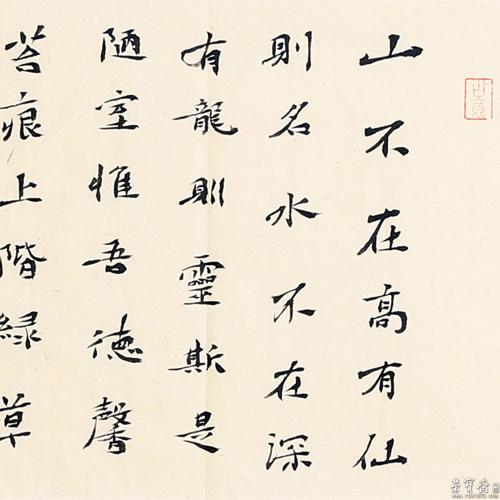 山不在高有仙
則名水不在深
有龍則靈斯是
陋室惟吾德馨
苔痕上階緑草